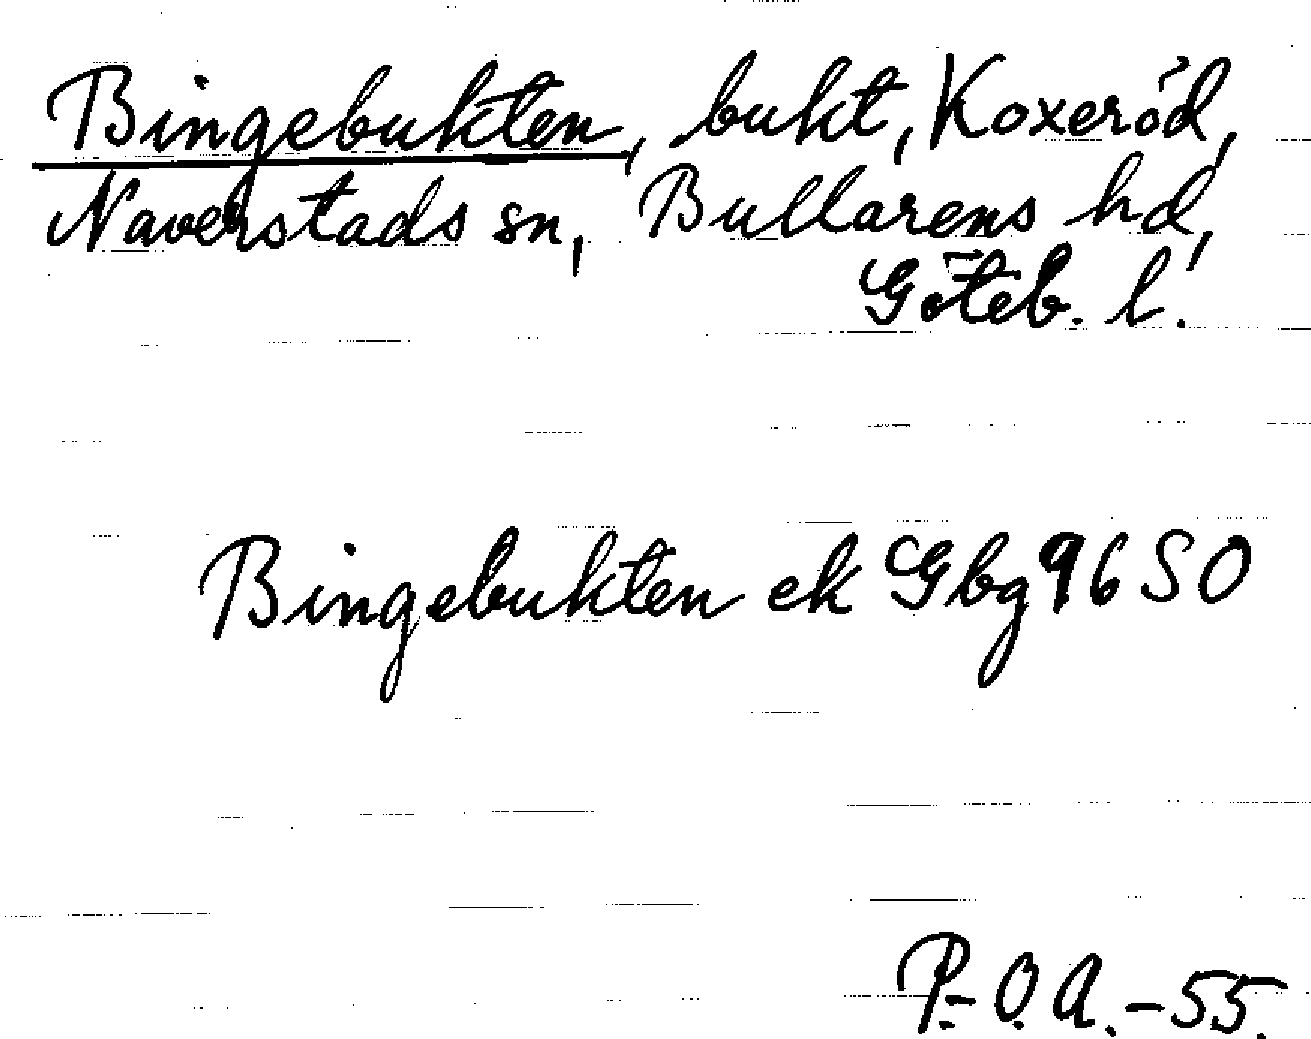 Bingebukten, bukt, Koxeröd,
Naverstads sn, Bullarens hd,
Göteb. l.
Bingebukten ek Gbg 96 SO
P.-O. A. -55.